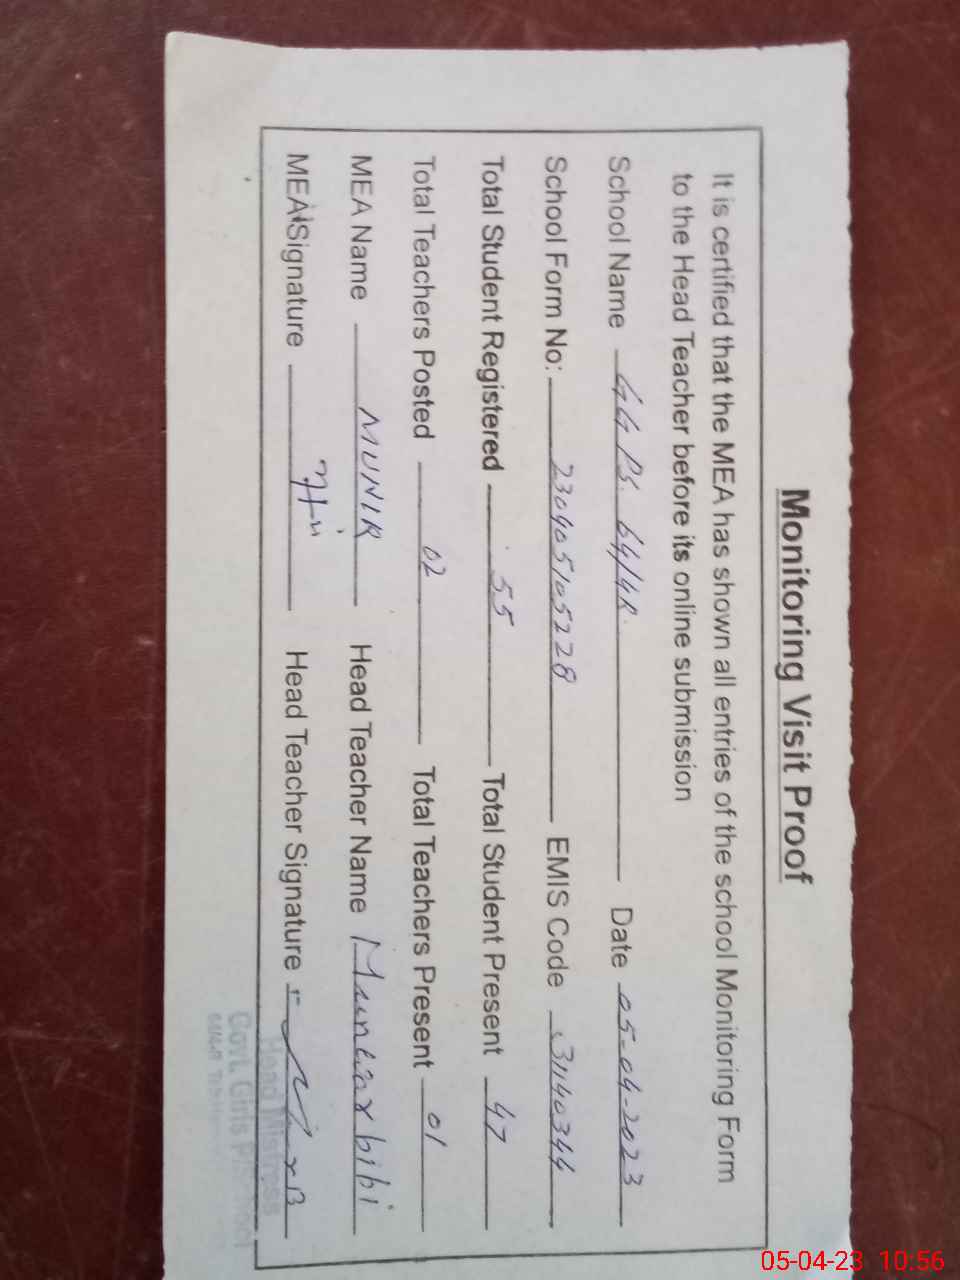 Monitoring Visit Proof
It is certified that the MEA has shown all entries of the school Monitoring Form
to the Head Teacher before its online submission
School Name GGPS. 64/4R. Date 05-04-2023
School Form No: 230405105228 EMIS Code 31140344
Total Student Registered 55 Total Student Present 47
Total Teachers Posted 02 Total Teachers Present 01
MEA Name MUNIR Head Teacher Name bibi
MEA Signature Head Teacher Signature
Head Mistress
Govt. Girls P/School
05-04-23 10:56